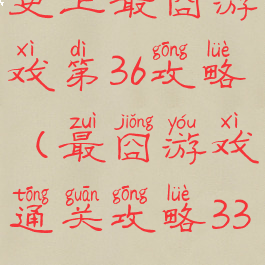 史上最囧游
xì dì gōng lüè
戏第36攻略
zuì jiǒng yóu xì
（最囧游戏
tōng guān gōng lüè
通关攻略33